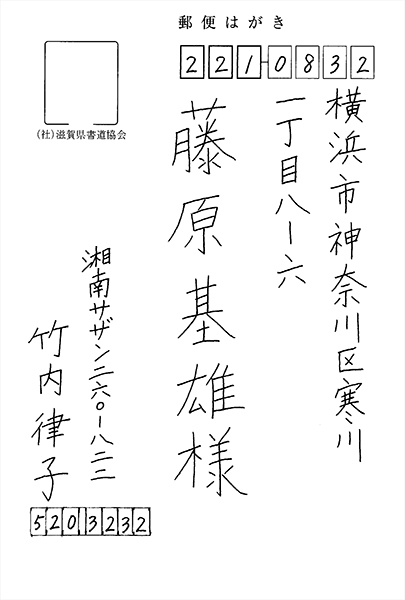 郵便はがき
221-0832
(社)滋賀県書道協会
横浜市神奈川区寒川
一丁目八ー六
藤原基雄様
湘南サザン二六〇ー八二二
竹内律子
5203232